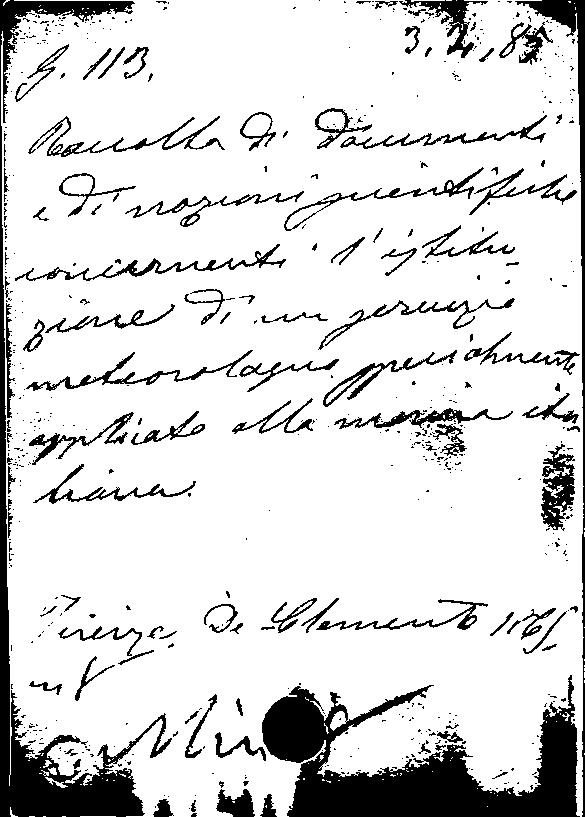 G. 113.
3. 4, 85
Raccolta di documenti
e di nozioni scientifiche
concernenti l'istitu-
zione di un servizio
meteorologico specialmente
applicato alla marina ita
liana.
Firenze. De Clemento 1865.
in 8